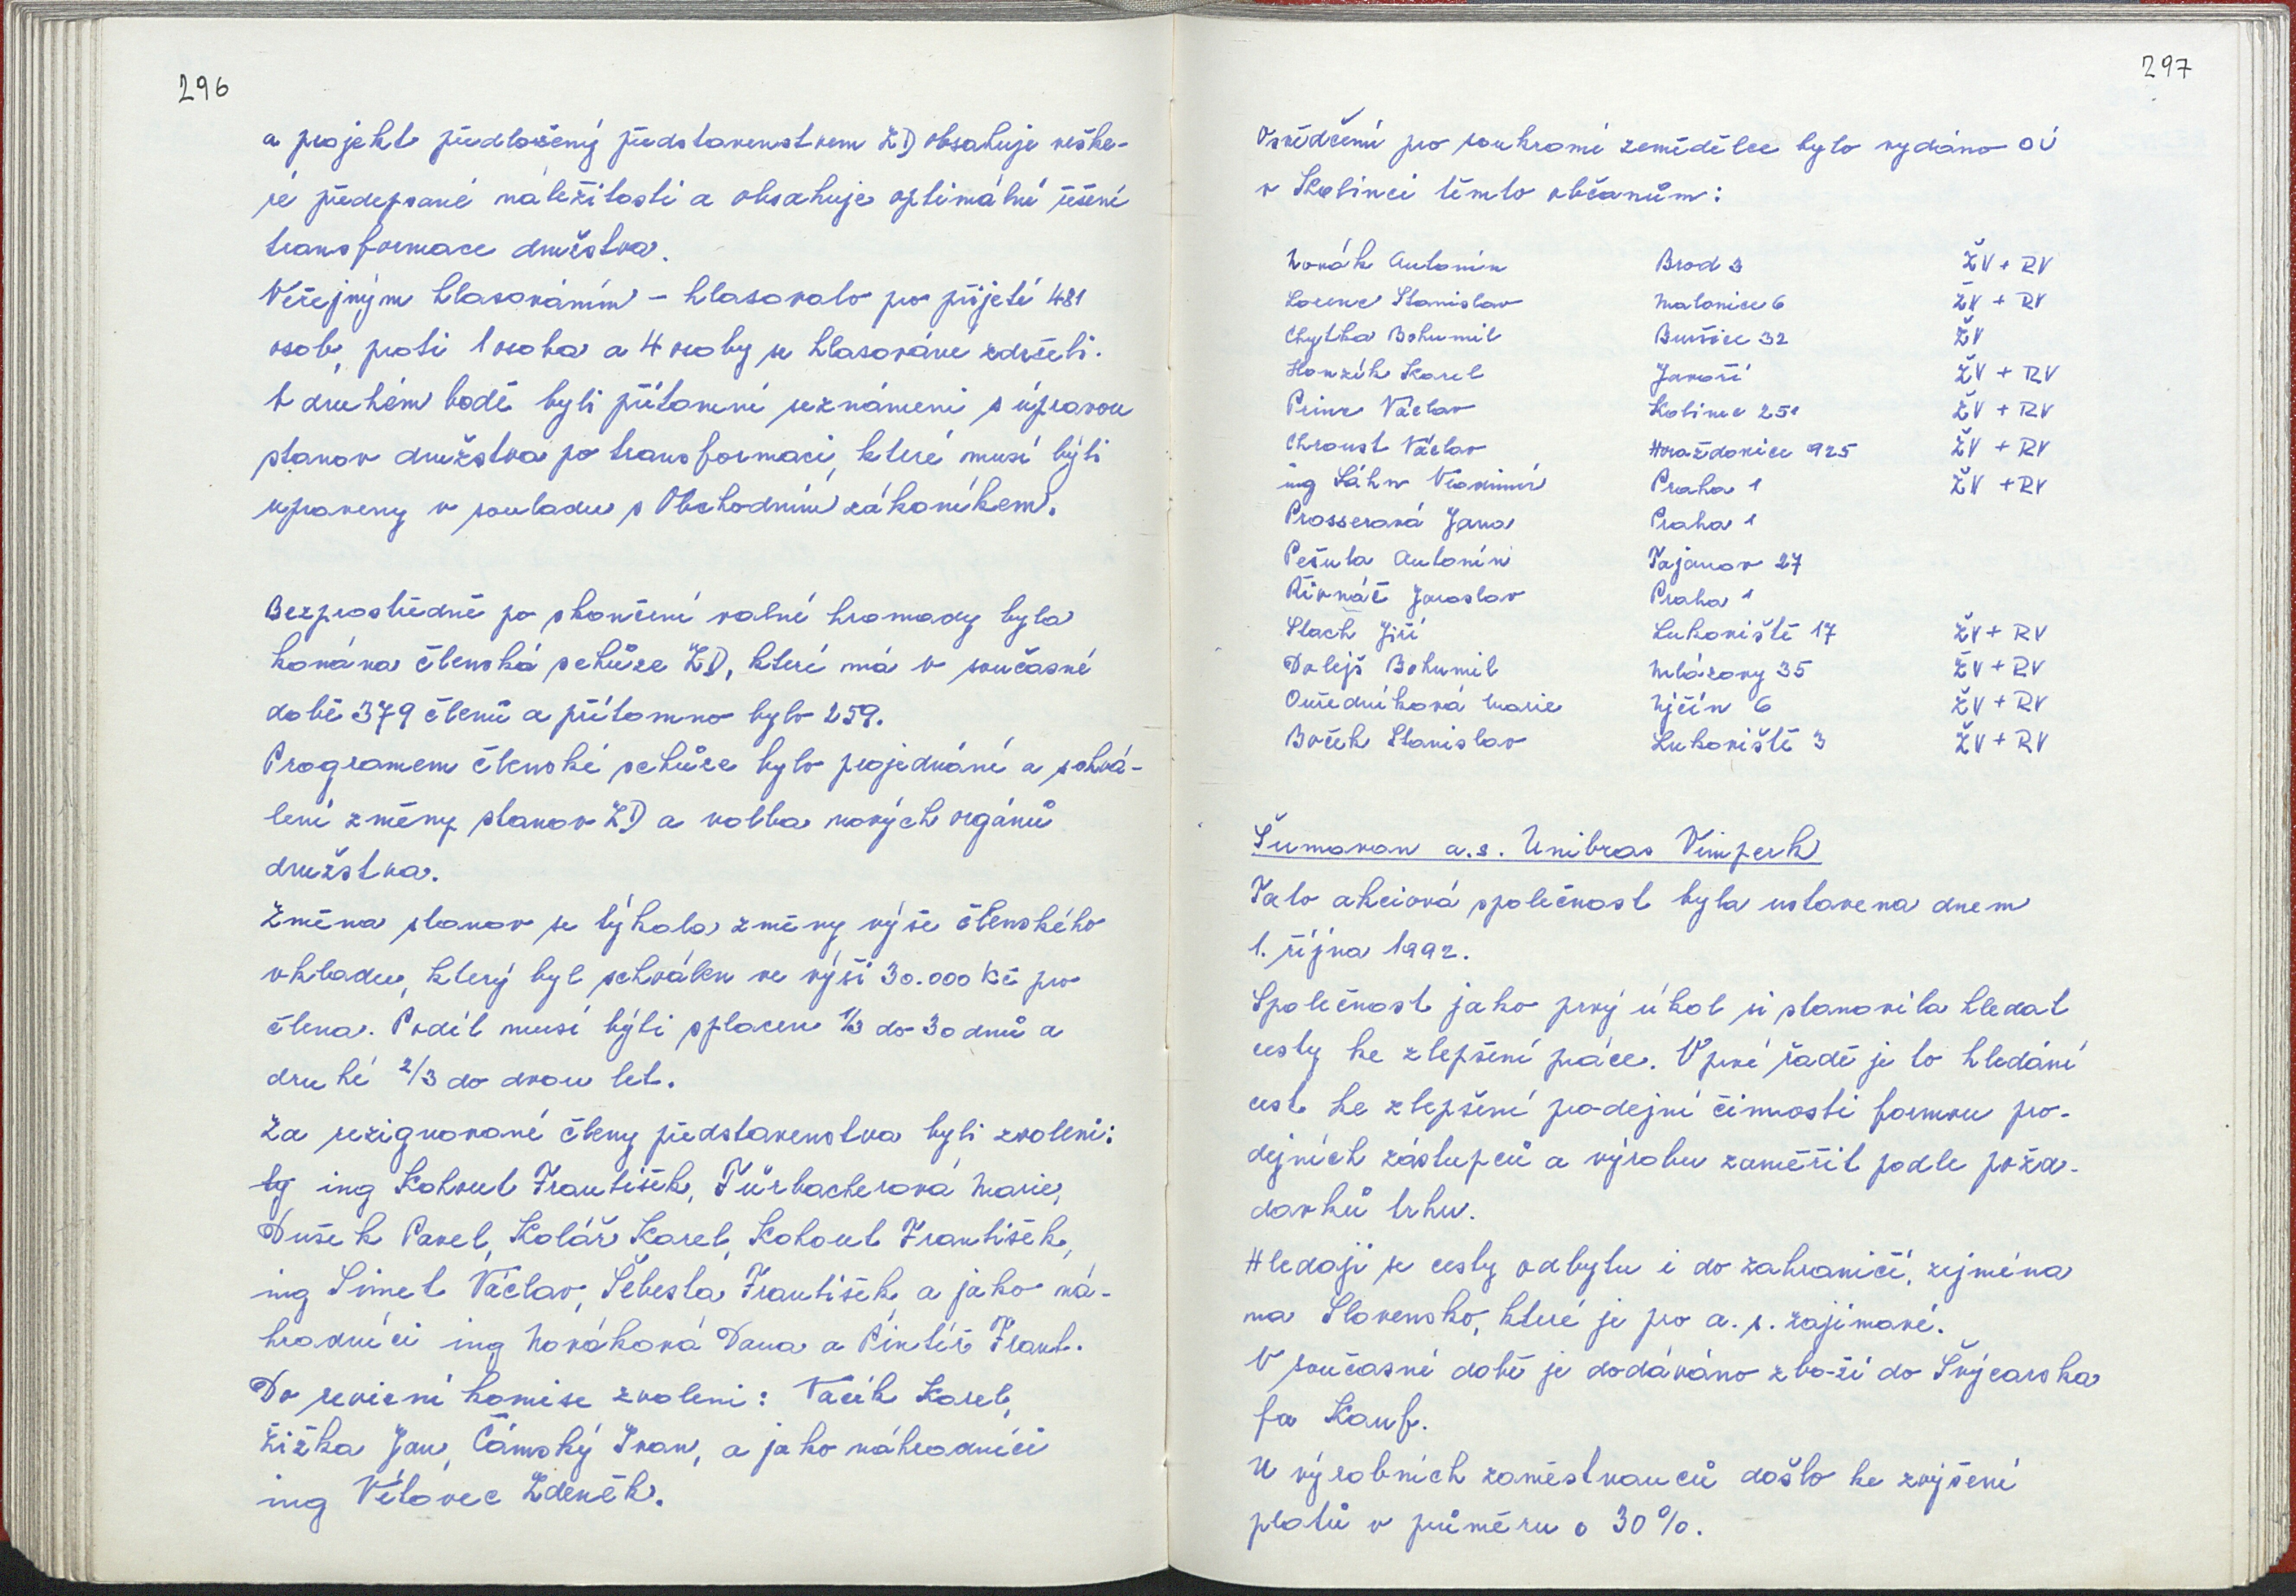 296
a projekt předložený představenstvem ZD obsahuje veške-
ré předepsané náležitosti a obsahuje optimální řešení
transformace družstva.
Veřejným hlasováním - hlasovalo pro přijetí 481
osob, proti 1 osoba a 4 osoby se hlasování zdrželi.
V druhém bodě byli přítomní seznámeni s úpravou
stanov družstva po transformaci, které musí býti
upraveny v souladu s Obchodním zákoníkem.
Bezprostředně po skončení valné hromady byla
konána členská schůze ZD, které má v současné
době 379 členů a přítomno bylo 259.
Programem členské schůze bylo projednání a schvá-
lení změny stanov ZD a volba nových orgánů
družstva.
Změna stanov se týkala změny výše členského
vkladu, který byl schválen ve výši 30.000 Kč pro
člena. Podíl musí býti splacen 1/3 do 30 dnů a
druhé 2/3 do dvou let.
Za rezignované členy představenstva byli zvoleni:
ing Kohout František, Fürbacherová Marie,
Dušek Pavel, Kolář Karel, Kohout František,
ing Simet Václav, Šebesta František, a jako ná-
hradníci ing Nováková Dana a Pintíř Frant.
Do revizní komise zvoleni: Vacík Karel,
Žižka Jan, Čámský Ivan, a jako náhradníci
ing Vétovec Zdeněk.
297
Osvědčení pro soukromé zemědělce bylo vydáno OÚ
v Kolinci těmto občanům:
Novák Antonín Brod 3 ŽV + RV
Lorenc Stanislav Malonice 6 ŽV + RV
Chytka Bohumil Buršice 32 ŽV
Honzík Karel Javoří ŽV + RV
Princ Václav Kolinec 251 ŽV + RV
Chroust Václav Horažďovice 925 ŽV + RV
ing Sáhn Vladimír Praha 1 ŽV + RV
Prosserová Jana Praha 1
Pešula Antonín Tajanov 27
Řivnáč Jaroslav Praha 1
Stach Jiří Lukoviště 17 ŽV + RV
Dolejš Bohumil Mlázovy 35 ŽV + RV
Ouředníková Marie Ujčín 6 ŽV + RV
Boček Stanislav Lukoviště 3 ŽV + RV
Šumavan a.s. Unibras Vimperk
Tato akciová společnost byla ustavena dnem
1. října 1992.
Společnost jako prvý úkol si stanovila hledat
cesty ke zlepšení práce. V prvé řadě je to hledání
cest ke zlepšení prodejní činnosti formou pro-
dejních zástupců a výrobu zaměřit podle poža-
davků trhu.
Hledají se cesty odbytu i do zahraničí, zejména
na Slovensko, které je pro a. s. zajímavé.
V současné době je dodáváno zboží do Švýcarska
fa Kauf.
U výrobních zaměstnanců došlo ke zvýšení
platů v průměru o 30%.